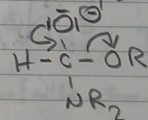 :Ö: ⊖
H - C - OR
NR₂